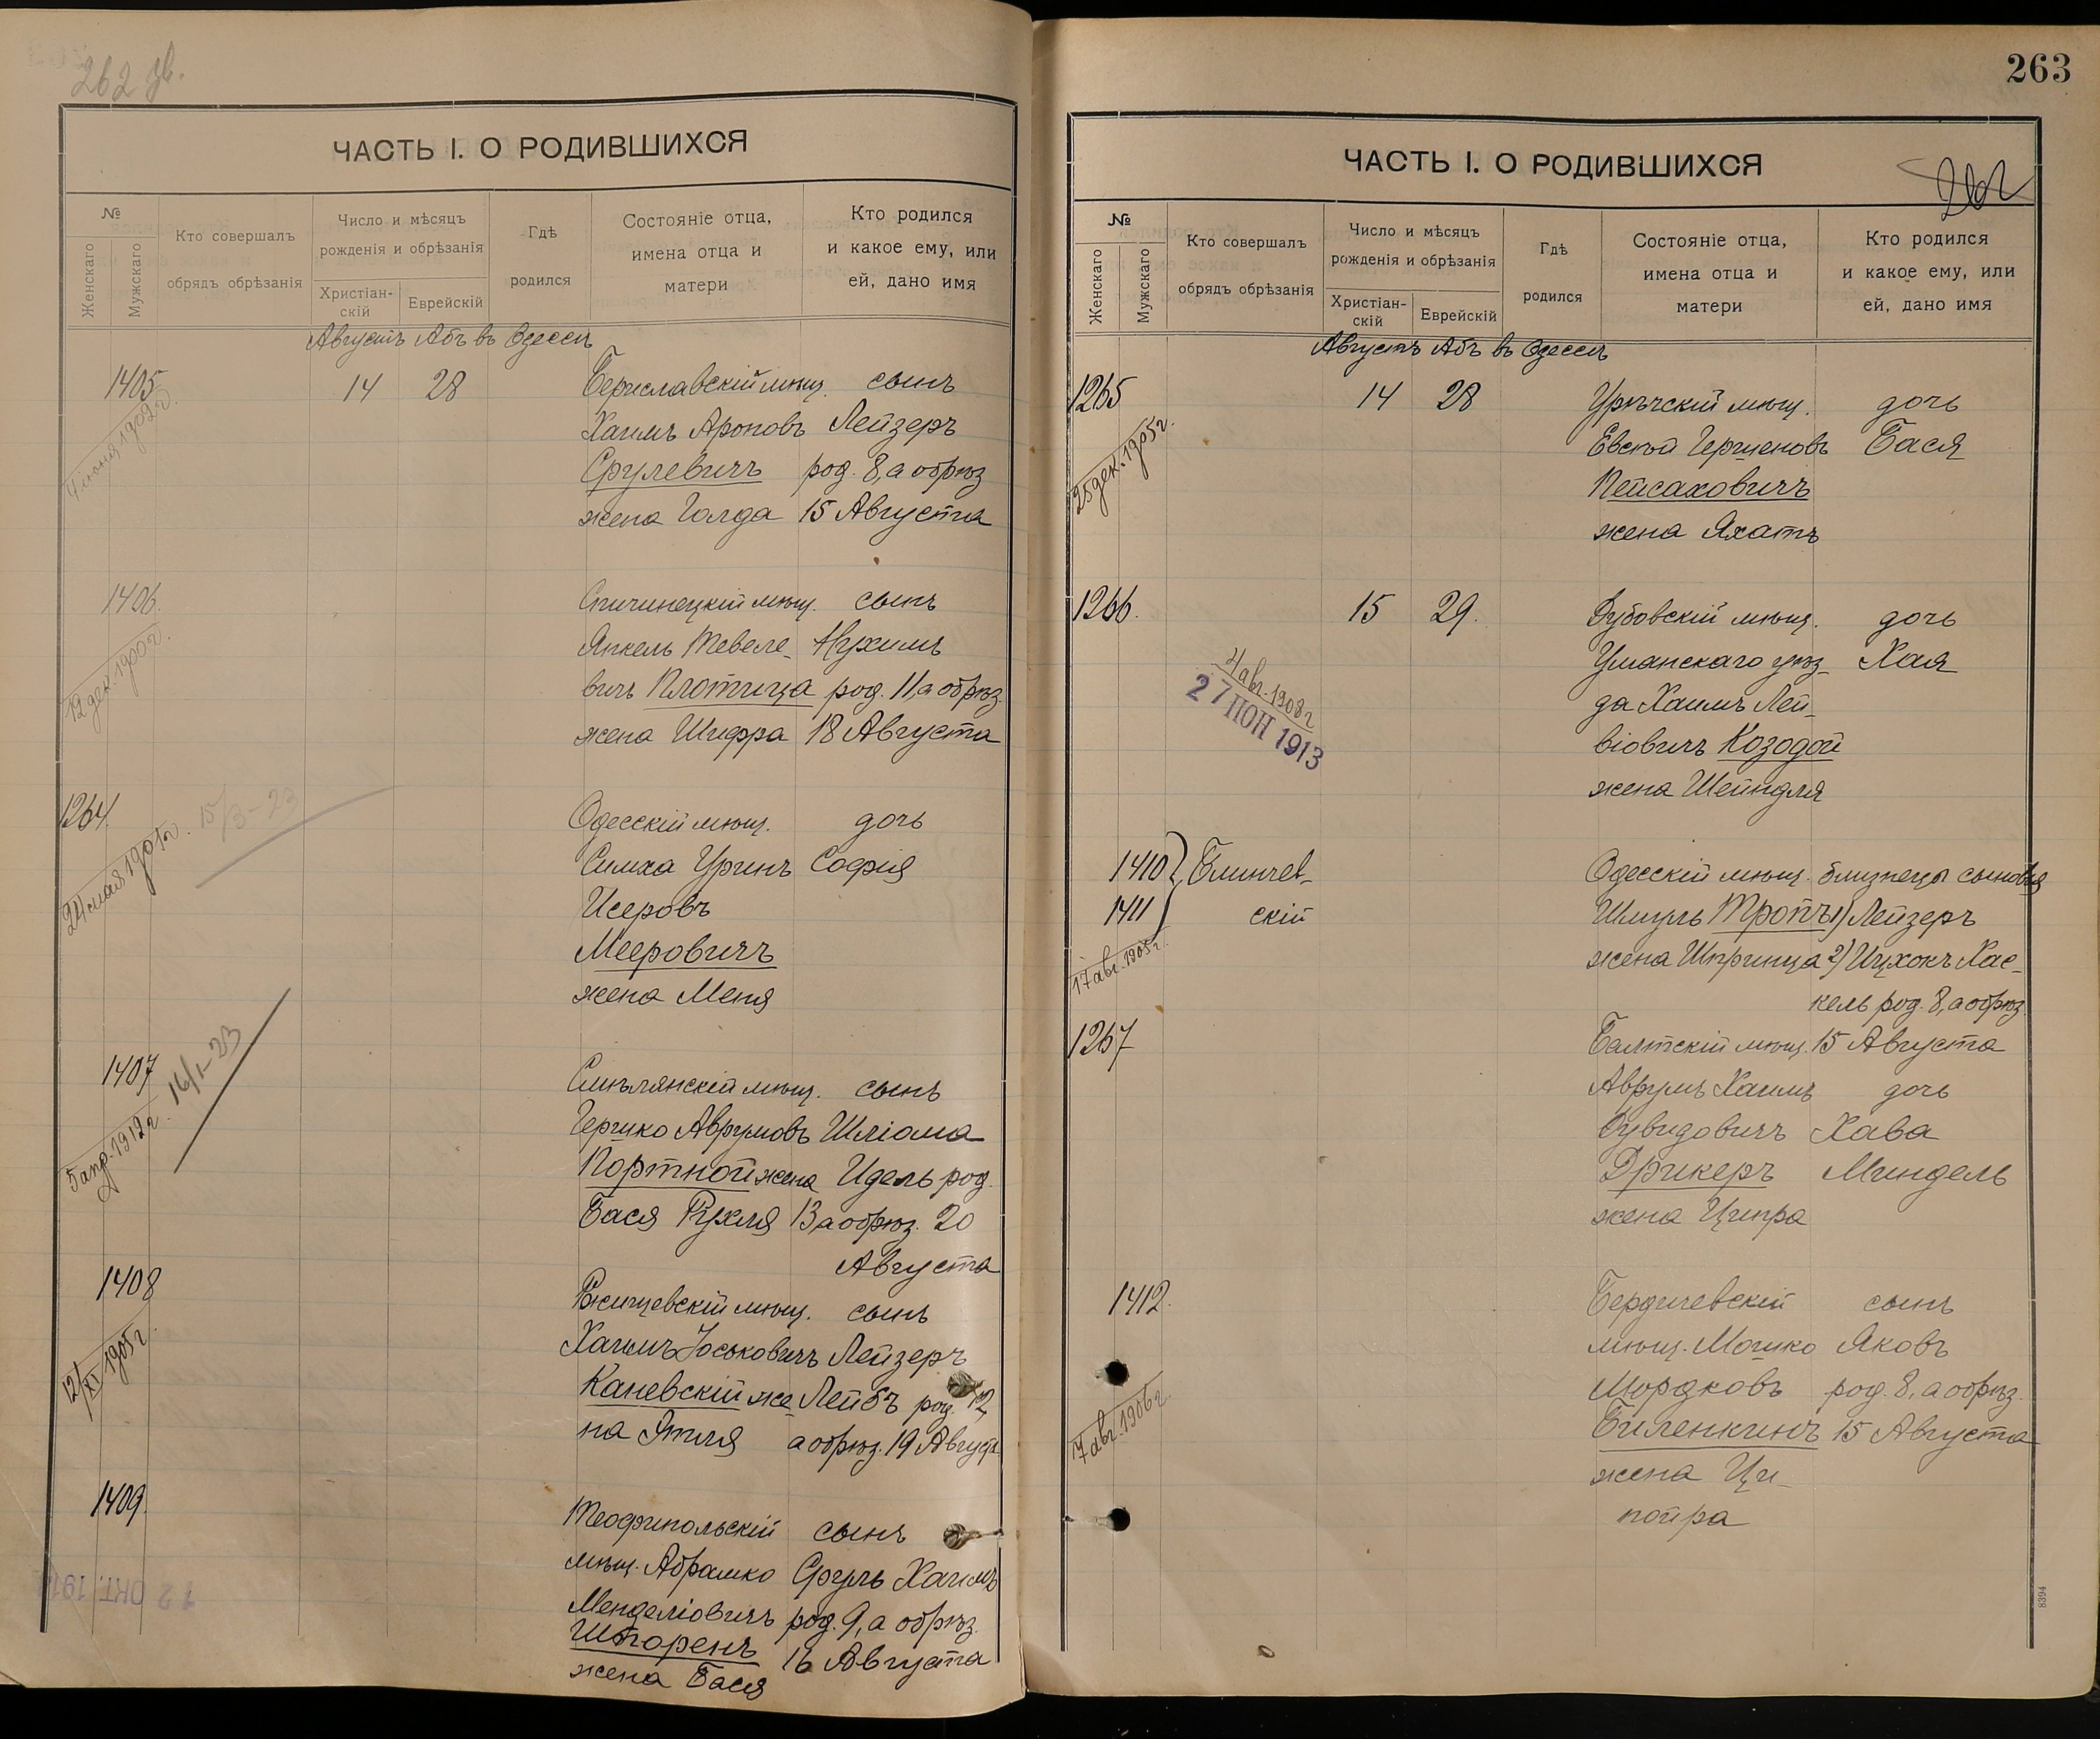 262 зв.
ЧАСТЬ I. О РОДИВШИХСЯ
№
Женскаго
Мужскаго
Кто совершалъ
обрядъ обрѣзанія
Число и мѣсяцъ
рожденія и обрѣзанія
Христіан-
скій
Еврейскій
Гдѣ
родился
Состояніе отца,
имена отца и
матери
Кто родился
и какое ему, или
ей, дано имя
Августъ Абъ въ Одессѣ
1405 14 28 Бериславскій мѣщ. сынъ
Хаимъ Ароновъ Лейзеръ
Срулевичъ род. 8, а обрѣз
жена Голда 15 Августа
4 іюня 1902 г.
1406. Спичинецкій мѣщ. сынъ
Янкель Тевеле- Нухимъ
вичъ Плотица род. 11, а обрѣз.
жена Шифра 18 Августа
12 дек. 1900 г.
1264. Одесскій мѣщ. дочь
Симха Уринъ София
Исеровъ
Мееровичъ
жена Меня
24 мая 1905 г. 15/3-23
1407 Смѣлянскій мѣщ. сынъ
Гершко Аврумовъ Шлiома
Портной жена Идель род.
Бася Рухля 13 а обрѣз. 20
Августа
5 апр. 1912 г. 16/I-23
1408 Ржищевскій мѣщ. сынъ
Хаимъ Іоськовичъ Лейзеръ
Каневскій же- Лейбъ род. 12,
на Этля а обрѣз. 19 Август.
12/XI 1905 г.
1409. Теофипольскій сынъ
мѣщ. Абрамко Сруль Хаимъ
Менделіовичъ род. 9, а обрѣз.
Шторенъ 16 Августа
жена Бася
12 ОКТ. 191
263
ЧАСТЬ I. О РОДИВШИХСЯ
№
Женскаго
Мужскаго
Кто совершалъ
обрядъ обрѣзанія
Число и мѣсяцъ
рожденія и обрѣзанія
Христіан-
скій
Еврейскій
Гдѣ
родился
Состояніе отца,
имена отца и
матери
Кто родился
и какое ему, или
ей, дано имя
Августъ Абъ въ Одессѣ
1265 14 28 Урѣчскій мѣщ. дочь
Евсѣй Гершеновъ Бася
Пейсаховичъ
жена Яхать
25 дек. 1905 г.
1266. 15 29. Дубовскій мѣщ. дочь
Уманскаго уѣз- Хая
да Хаимъ Лей-
віовичъ Козодой
жена Шейндля
4 авг. 1908 г
1410 Блинчев- Одесскій мѣщ. близнецы сыновья
1411 скій Шмуль Тропъ 1) Лейзеръ
жена Шпринца 2) Ицхокъ Хас-
кель род. 8, а обрѣз.
17 авг. 1905 г.
1267 Балтскій мѣщ. 15 Августа
Аврумъ Хаимъ дочь
Дувидовичъ Хава
Дрикеръ Миндель
жена Ципра
1412. Бердичевскій сынъ
мѣщ. Мошко Яковъ
Мордковъ род. 8, а обрѣз.
Биленкинъ 15 Августа
жена Ци-
пойра
7 авг. 1906 г.
8394